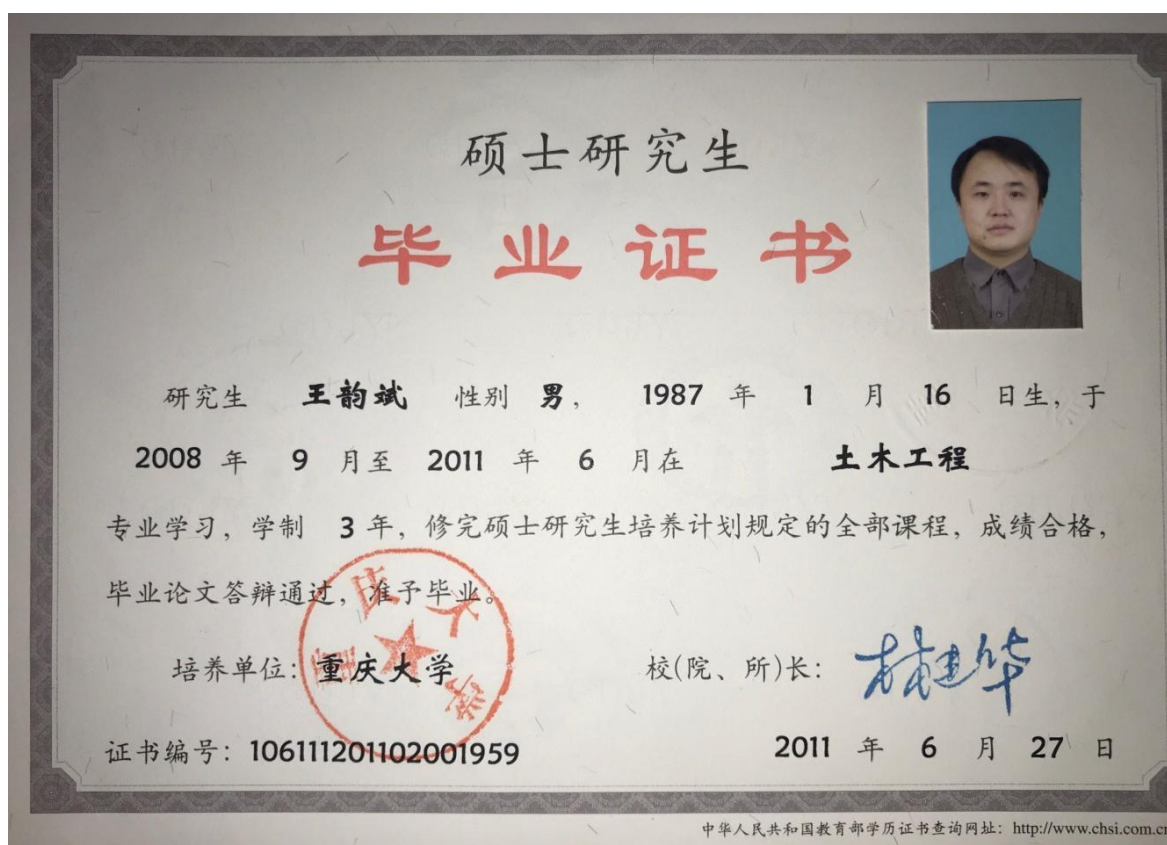 硕士研究生
毕业证书
研究生 王韵斌 性别 男, 1987 年 1 月 16 日生, 于
2008 年 9 月至 2011 年 6 月在 土木工程
专业学习, 学制 3 年, 修完硕士研究生培养计划规定的全部课程, 成绩合格,
毕业论文答辩通过, 准予毕业。
培养单位: 重庆大学 校(院、所)长: 林建华
重庆大学
证书编号: 106111201102001959 2011 年 6 月 27 日
中华人民共和国教育部学历证书查询网址: http://www.chsi.com.cn